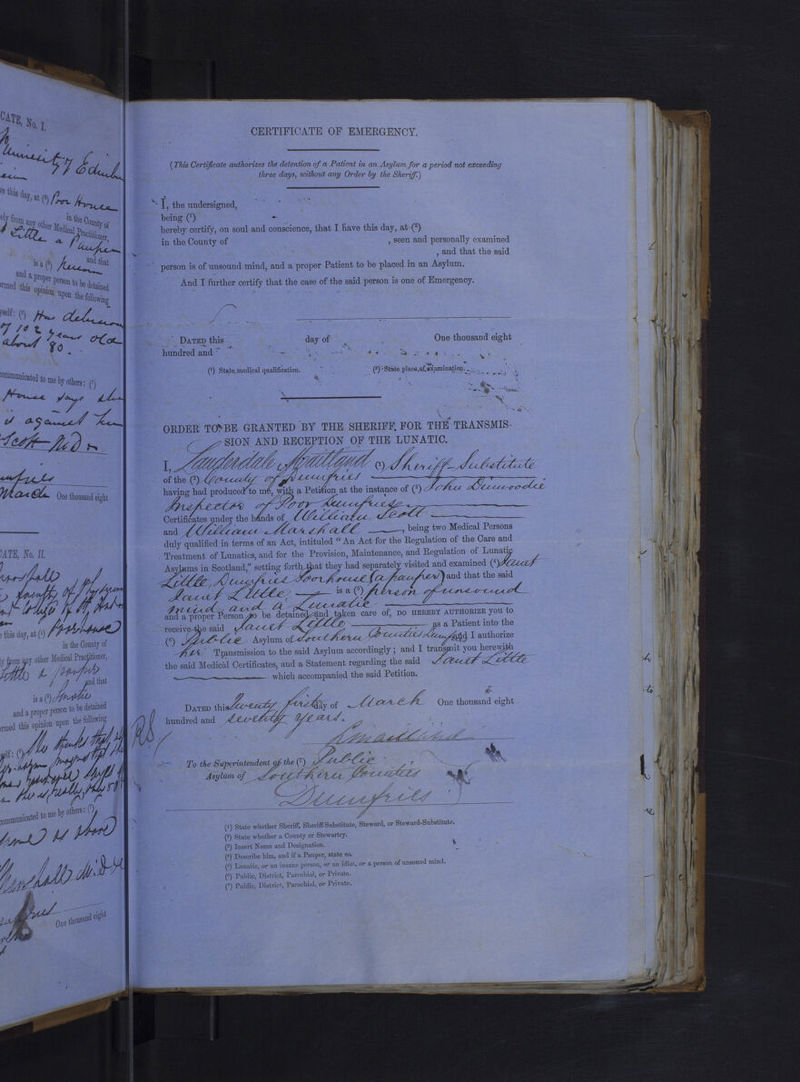 CATE, No. I.
this day, at (²) Poor House
in the County of
any other Medical Practitioner,
Little a Pauper
and that
is a (³)
and a proper person to be detained
this opinion upon the following
about 80.
communicated to me by others: (⁵)
House says she
is against her
Scott M.D
March One thousand eight
CATE, No. II.
this day, at (²) Poorhouse
in the County of
any other Medical Practitioner,
and that
is a (³)
and a proper person to be detained
this opinion upon the following
communicated to me by others: (⁵)
One thousand eight
CERTIFICATE OF EMERGENCY.
(This Certificate authorizes the detention of a Patient in an Asylum for a period not exceeding
three days, without any Order by the Sheriff.)
I, the undersigned,
being (¹)
hereby certify, on soul and conscience, that I have this day, at (²)
in the County of , seen and personally examined
, and that the said
person is of unsound mind, and a proper Patient to be placed in an Asylum.
And I further certify that the case of the said person is one of Emergency.
DATED this day of One thousand eight
hundred and
(¹) State medical qualification. (²) State place of examination.
ORDER TO BE GRANTED BY THE SHERIFF FOR THE TRANSMIS-
SION AND RECEPTION OF THE LUNATIC.
I, Lauderdale Maitland (¹) Sheriff Substitute
of the (²) County of Dumfries
having had produced to me, with a Petition at the instance of (³) John Dinwoodie
Inspector of Poor Dumfries
Certificates under the hands of William Scott
and William Marshall , being two Medical Persons
duly qualified in terms of an Act, intituled "An Act for the Regulation of the Care and
Treatment of Lunatics, and for the Provision, Maintenance, and Regulation of Lunatic
Asylums in Scotland," setting forth that they had separately visited and examined (⁴) Janet
Little, Dumfries Poorhouse (a pauper) and that the said
Janet Little is a (⁵) person of unsound
mind, and a Lunatic
and a proper Person to be detained and taken care of, DO HEREBY AUTHORIZE you to
receive the said Janet Little as a Patient into the
(⁶) Public Asylum of Southern Counties Dumfries and I authorize
her Transmission to the said Asylum accordingly; and I transmit you herewith
the said Medical Certificates, and a Statement regarding the said Janet Little
which accompanied the said Petition.
DATED this twenty first day of March One thousand eight
hundred and seventy years.
L Maitland
To the Superintendent of the (⁷) Public
Asylum of Southern Counties
Dumfries
(¹) State whether Sheriff, Sheriff-Substitute, Steward, or Steward-Substitute.
(²) State whether a County or Stewartry.
(³) Insert Name and Designation.
(⁴) Describe him, and if a Pauper, state so.
(⁵) Lunatic, or an insane person, or an idiot, or a person of unsound mind.
(⁶) Public, District, Parochial, or Private.
(⁷) Public, District, Parochial, or Private.